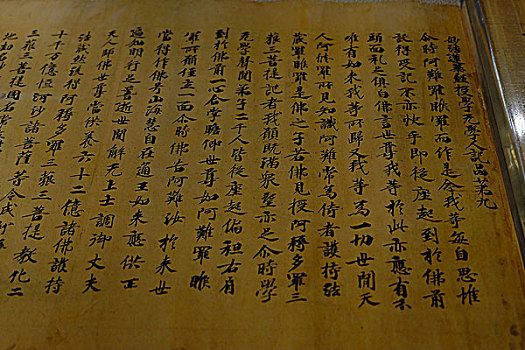 妙法蓮華經授學无學人記品第九
尒時阿難羅睺羅而作是念我等每自思惟
設得受記不亦快乎即從座起到於佛前
頭面礼足俱白佛言世尊我等於此亦應有分
唯有如來我等所歸又我等為一切世間天
人阿修羅所見知識阿難常為侍者護持法
藏羅睺羅是佛之子若佛見授阿耨多羅三
藐三菩提記者我願既滿眾望亦足尒時學
无學聲聞弟子二千人皆從座起偏袒右肩
到於佛前一心合掌瞻仰世尊如阿難羅睺
羅所願住立一面尒時佛告阿難汝於來世
當得作佛号山海慧自在通王如來應供正
遍知明行足善逝世間解无上士調御丈夫
天人師佛世尊當供養六十二億諸佛護持
法藏然後得阿耨多羅三藐三菩提教化二
十千万億恒河沙諸菩薩等令成
三藐三菩提國名常